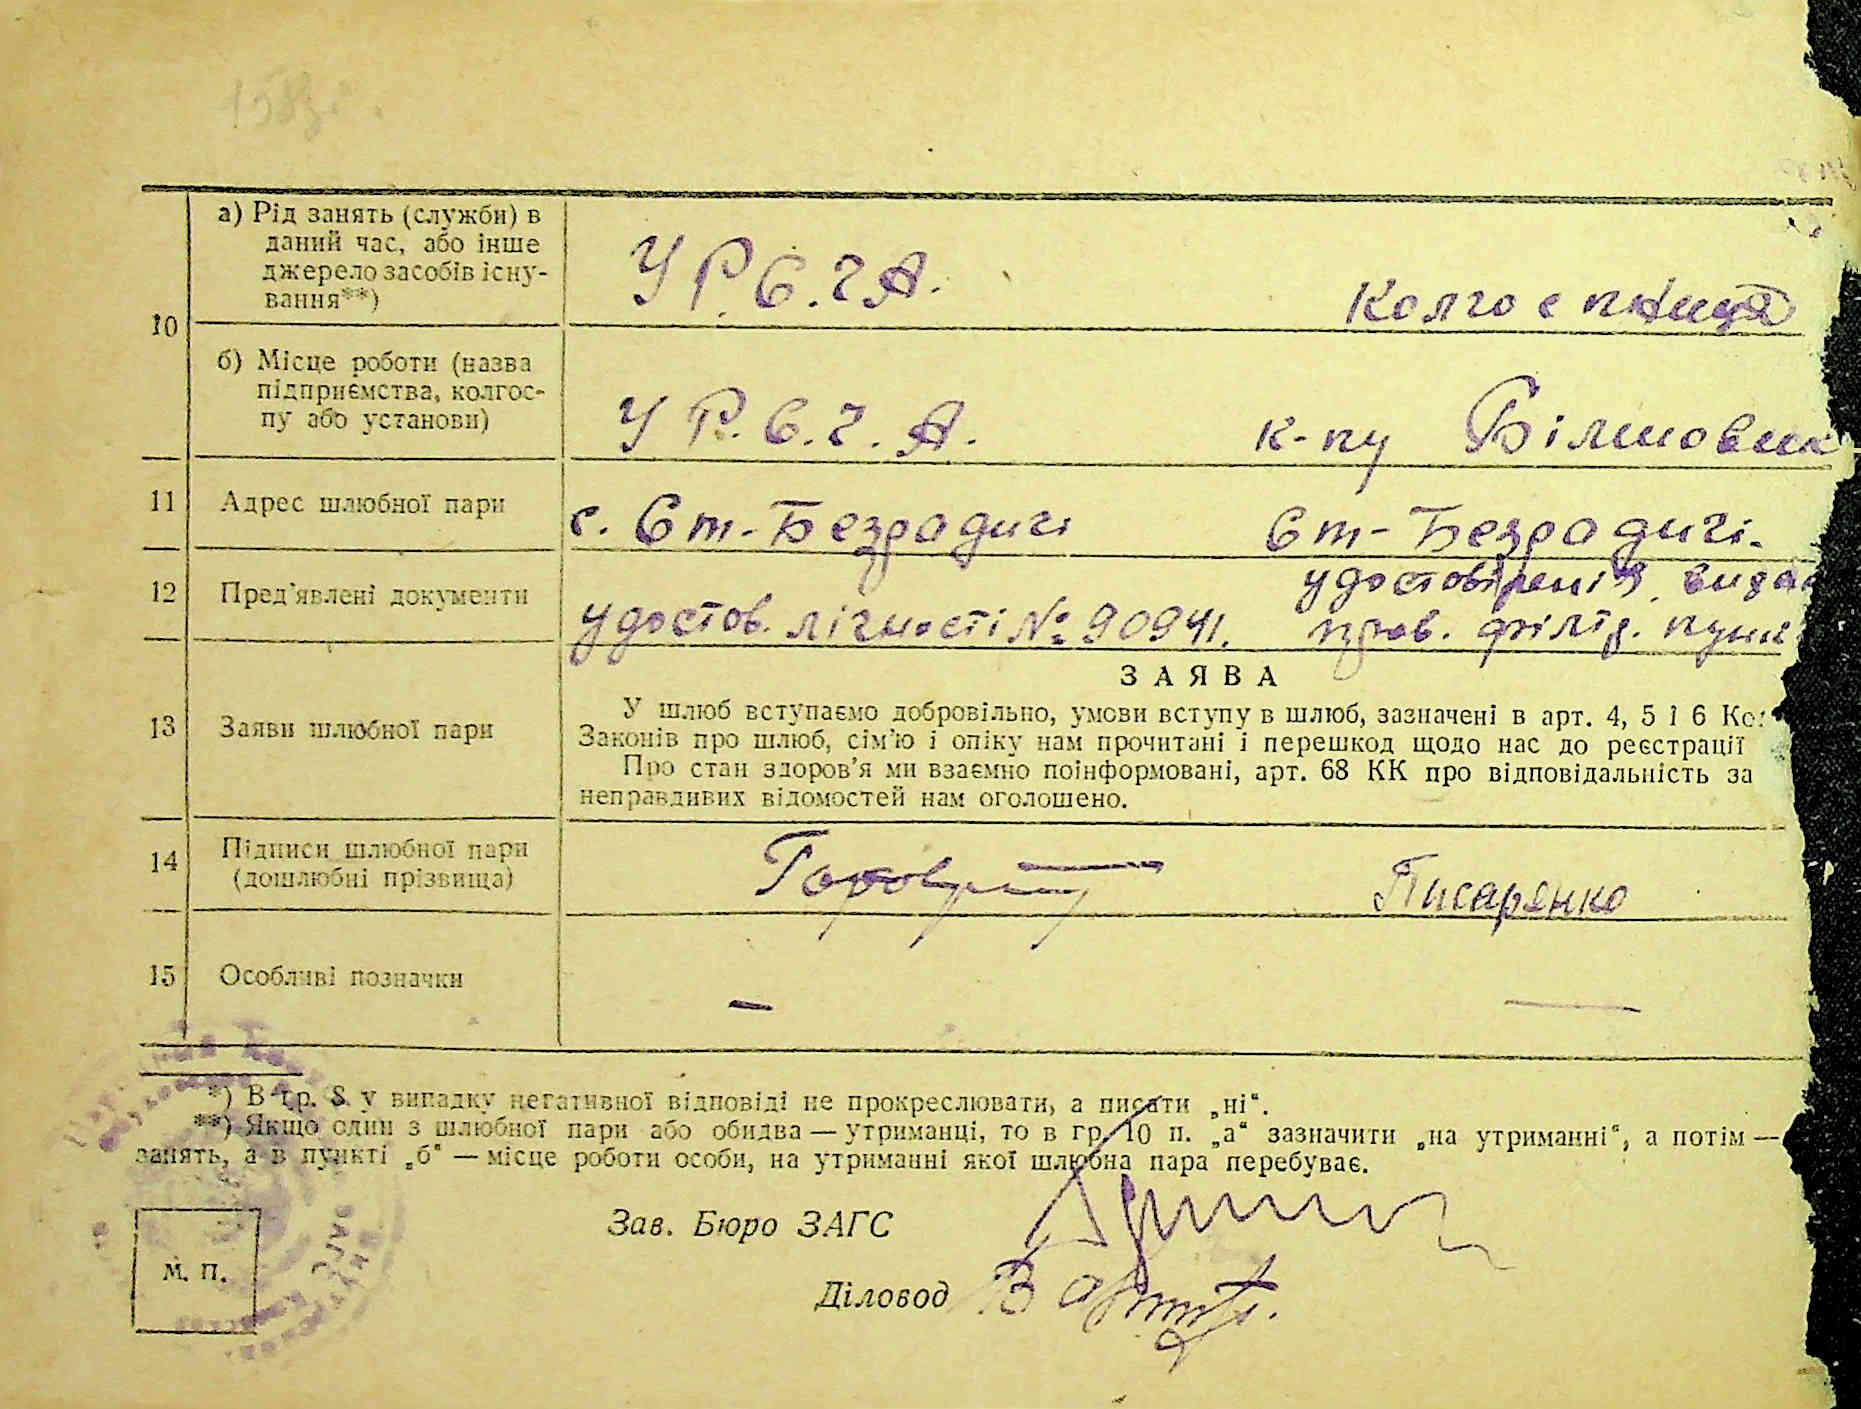 а) Рід занять (служби) в
даний час, або інше
джерело засобів існу-
вання**)
У Р.С.Ч.А.
Колгоспниця
10
б) Місце роботи (назва
підприємства, колгос-
пу або установи)
У Р.С.Ч.А.
к-пу Більшовик
11 Адрес шлюбної пари
с. Ст-Безрадичі
Ст-Безрадичі.
12 Пред'явлені документи
удостов. лічності № 90941.
удостовірения видан
пров. фільтр. пунк
13 Заяви шлюбної пари
ЗАЯВА
У шлюб вступаємо добровільно, умови вступу в шлюб, зазначені в арт. 4, 5 і 6 Ко
Законів про шлюб, сім'ю і опіку нам прочитані і перешкод щодо нас до реєстрації
Про стан здоров'я ми взаємно поінформовані, арт. 68 КК про відповідальність за
неправдивих відомостей нам оголошено.
14 Підписи шлюбної пари
(дошлюбні прізвища)
Писаренко
15 Особливі позначки
— —
*) В гр. 8 у випадку негативної відповіді не прокреслювати, а писати „ні“.
**) Якщо один з шлюбної пари або обидва — утриманці, то в гр. 10 п. „а“ зазначити „на утриманні“, а потім —
занять, а в пункті „б“ — місце роботи особи, на утриманні якої шлюбна пара перебуває.
Зав. Бюро ЗАГС
Діловод
М. П.
ЗАГС